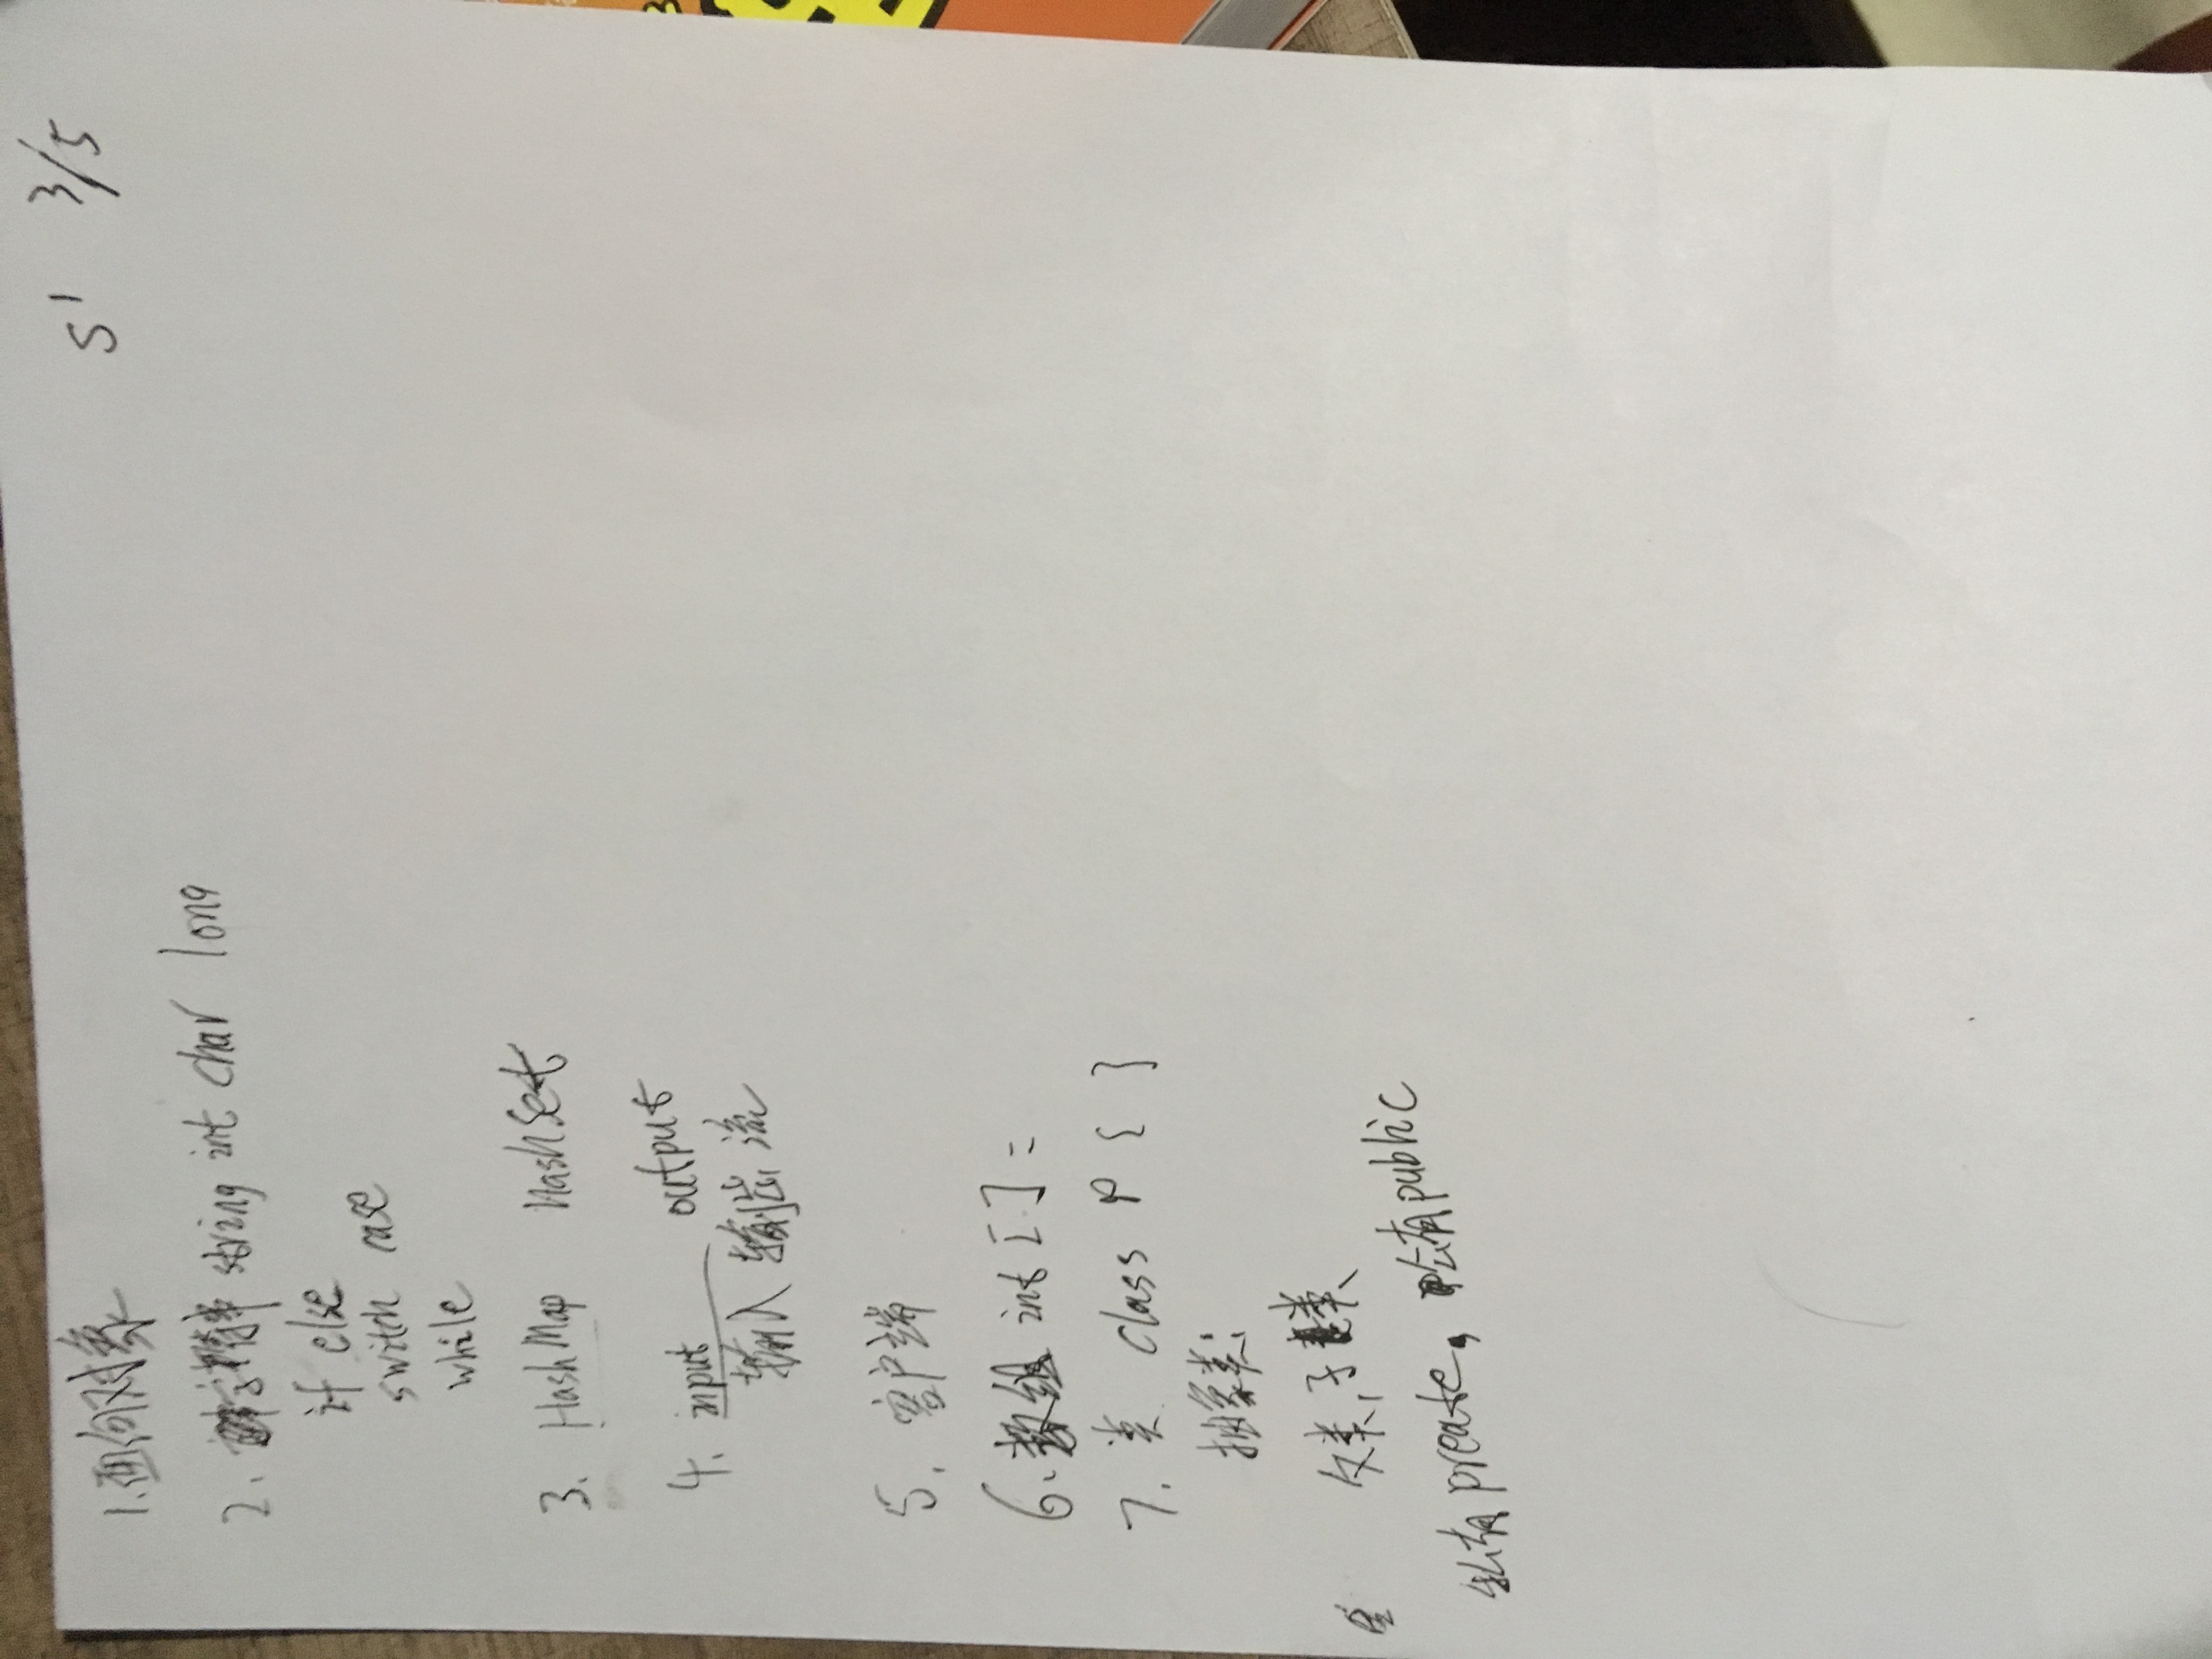 S' 3/5
1.面向对象
2. string int char long
if else
switch case
while
3. HashMap HashSet
4. input output
输入 输出 流
5. 客户端
6. 数组 int [ ] =
7. 类 class P { }
抽象类:
父类,子类
私有 preate, 公有 public